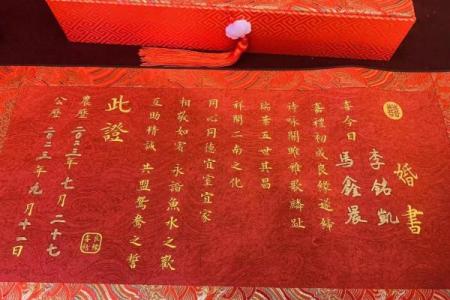 婚書
李铭凱
喜今日 馬鑫晨
嘉禮初成良緣遂締
诗咏關雎雅歌麟趾
瑞葉五世其昌
祥開二南之化
同心同德宜室宜家
相敬如賓 永諧魚水之歡
互助精誠 共盟鴛鴦之誓
此證
農歷二〇二三年七月二十七
公歷二〇二三年九月十一日